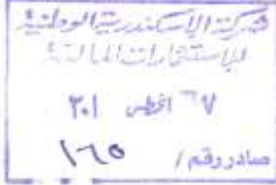 شركة الإسكندرية الوطنية
للإستثمارات المالية
٧ اغطس ٢٠١
صادر رقم / ١٦٥